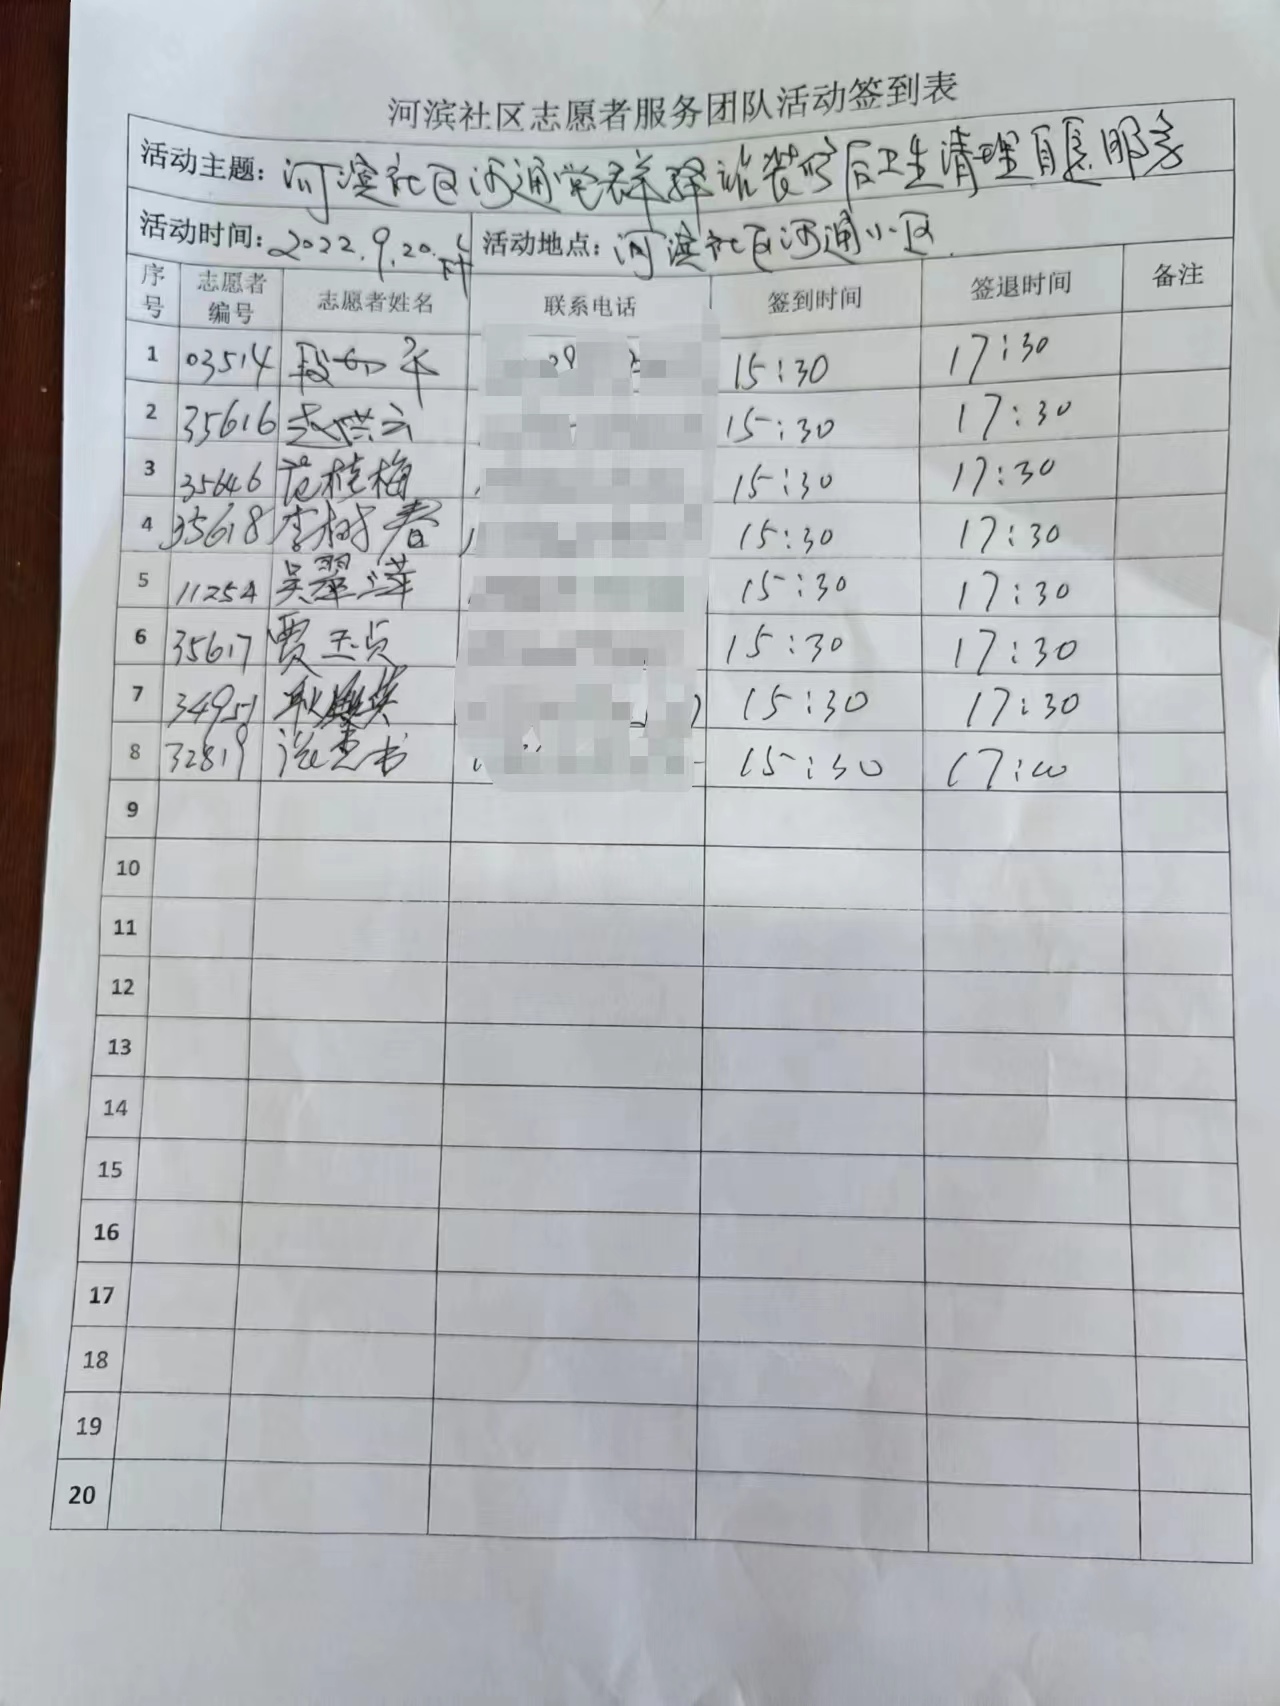 河滨社区志愿者服务团队活动签到表
活动主题：河滨社区河通党群驿站装修后卫生清理自愿服务
活动时间：2022.9.20.下午 活动地点：河滨社区河通小区
序号 志愿者编号 志愿者姓名 联系电话 签到时间 签退时间 备注
1 03514 段 15:30 17:30
2 35616 赵洪云 15:30 17:30
3 35646 范桂梅 15:30 17:30
4 35618 李树春 15:30 17:30
5 11254 吴翠萍 15:30 17:30
6 35617 贾玉贞 15:30 17:30
7 34951 耿 英 15:30 17:30
8 32819 书 15:30
9
10
11
12
13
14
15
16
17
18
19
20